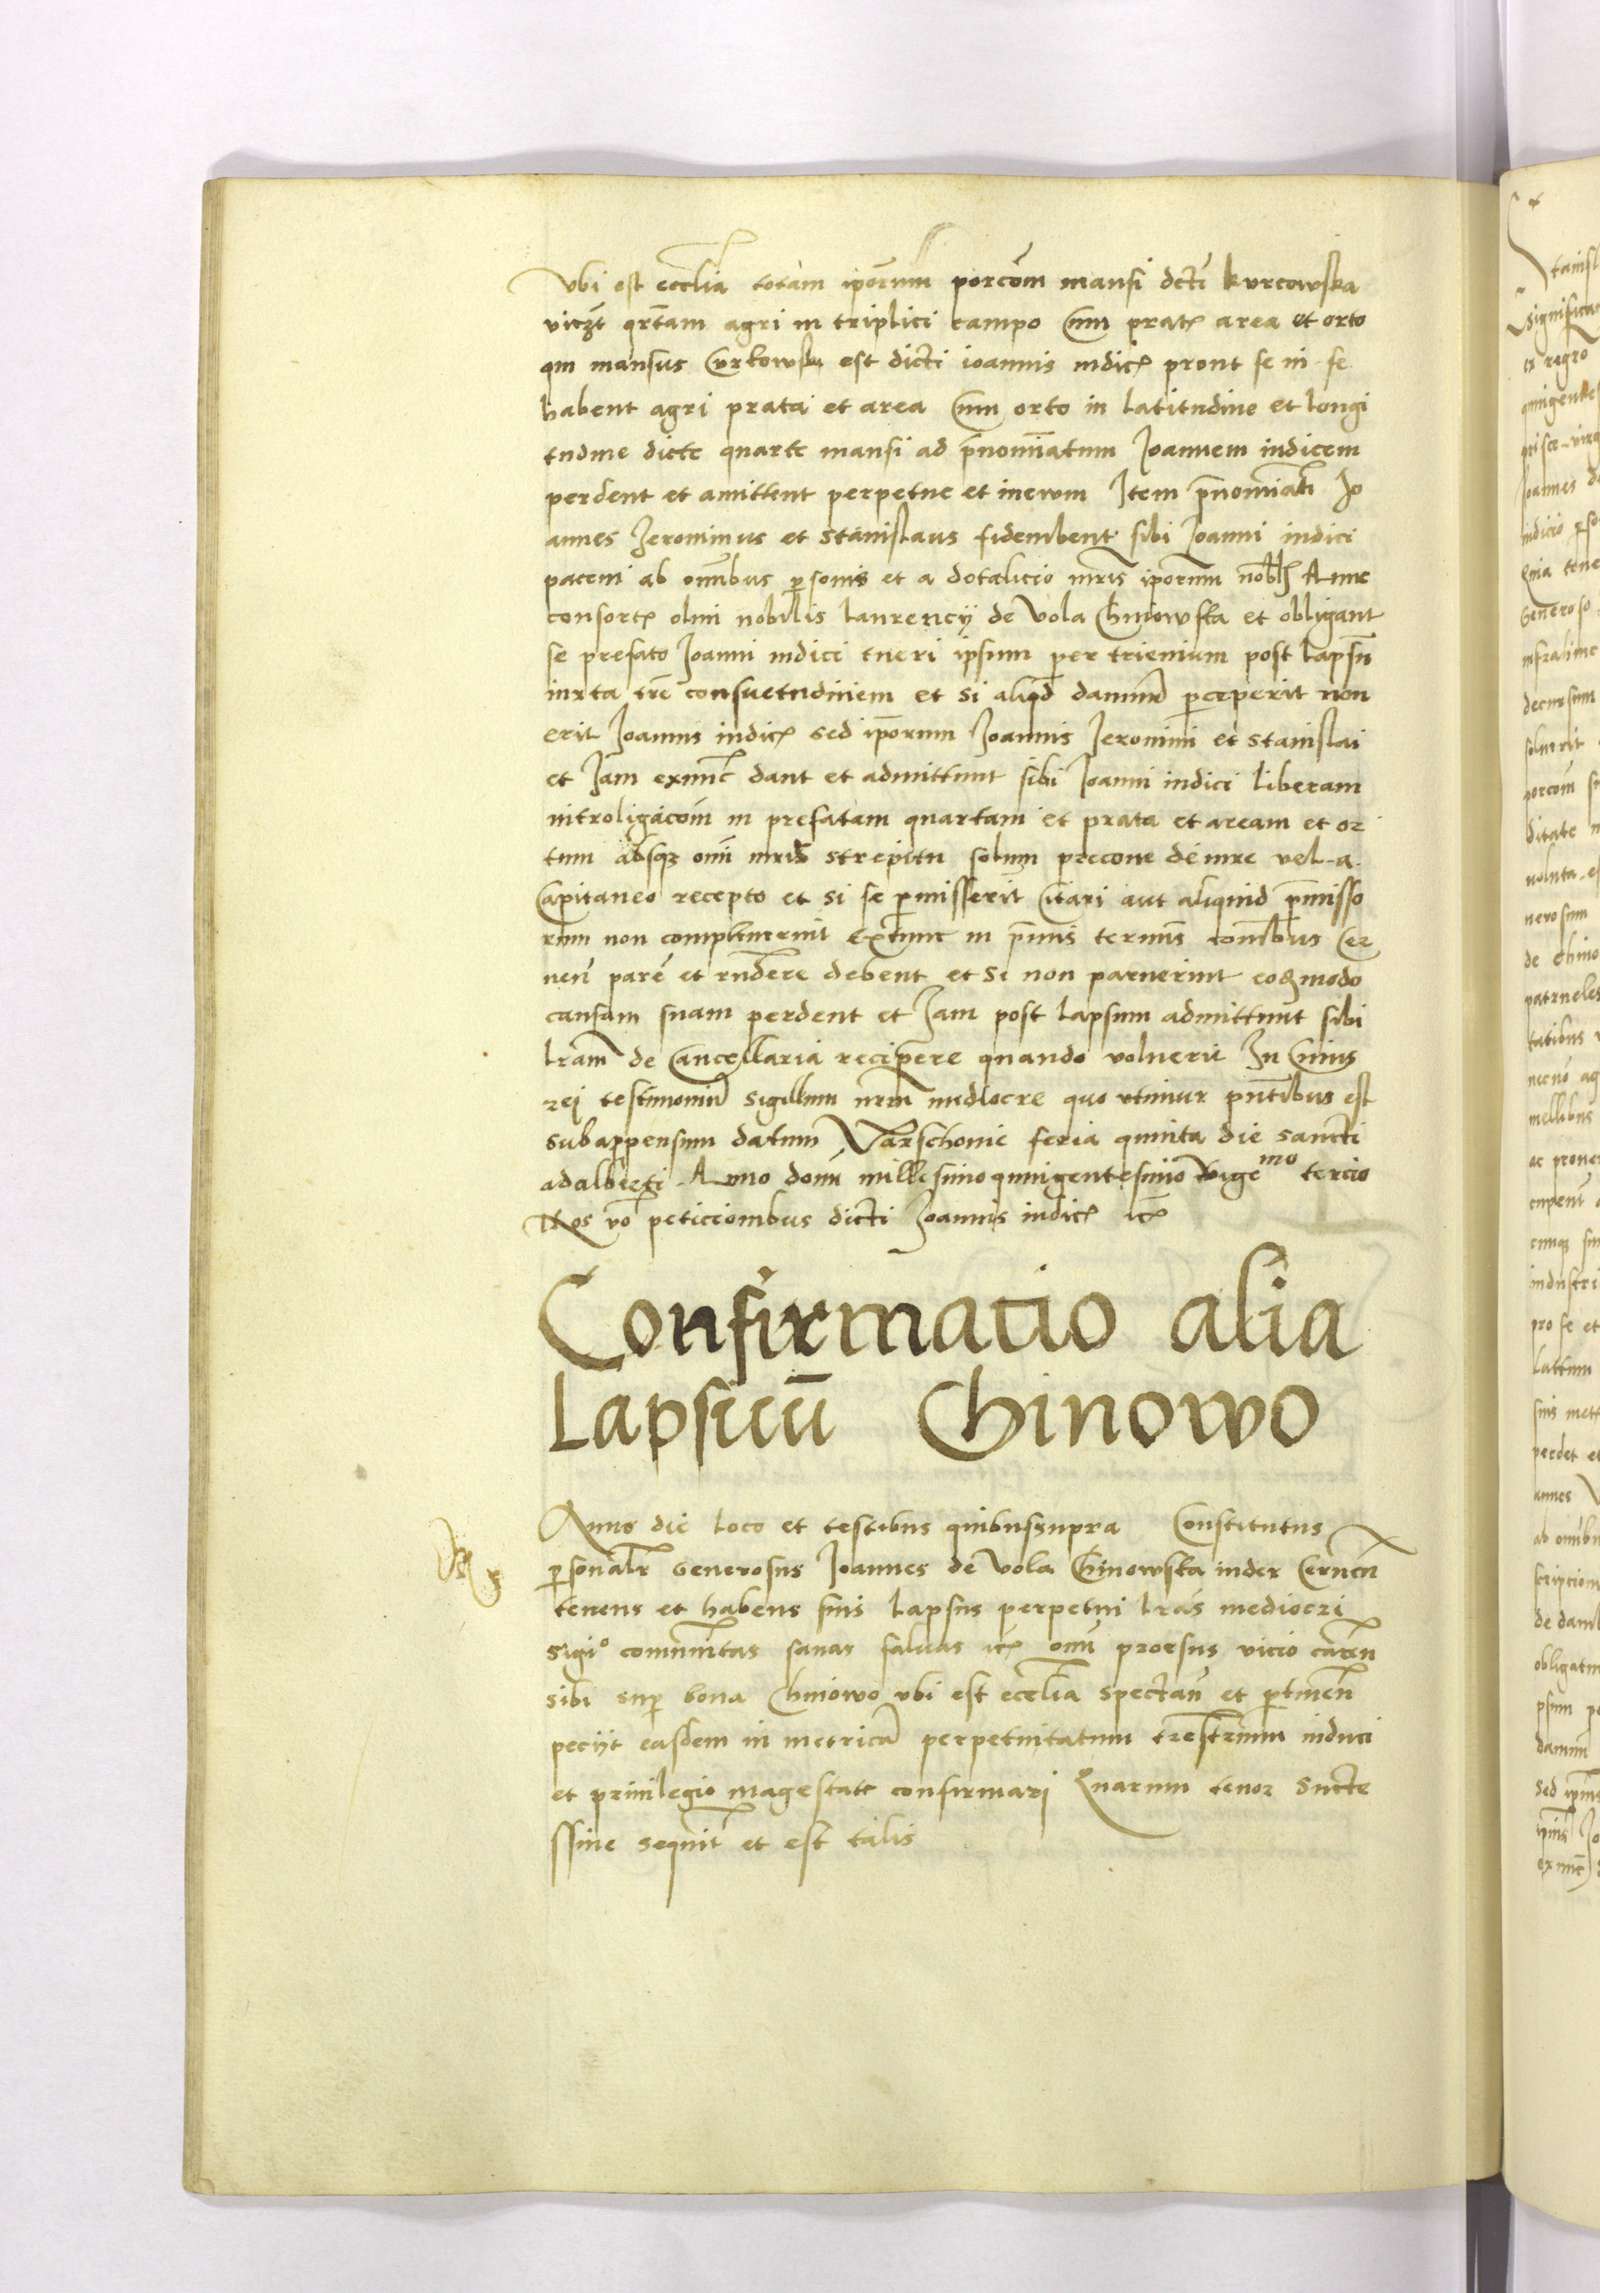 vbi est ecclīa totam ip̄orum porcōm mansi dctī kurcowska
vicꝫt qrtam agri in triplici campo Cum pratꝭ area et orto
qui mansus Curkowska est dicti ioannis iudicꝭ prout se in se
habent agri prata et area Cum orto in latitudine et longi
tudine dicte quarte mansi ad p̄nominatum Ioannem iudicem
perdent et amittent perpetue et in ewm Item p̄nominati Io
annes Ieronimus et Stanislaus fideiubent sibi Ioanni iudici
pacem ab omībus personis et a dotalicio mr̄is ip̄orum nobilꝭ Anne
consortꝭ olim nobilis laurencij de vola Chinowska et obligant
se prefato Ioanni iudici tueri ipsum per trienium post lapsū
iuxta trē consuetudinem et si aliqd damnū perceperit non
erit Ioannis iudicꝭ sed ip̄orum Ioannis Ieronimi et stanislai
et Iam exnūc dant et admittunt sibi Ioanni iudici liberam
intro ligacōm in prefatam quartam et prata et aream et or
tum absqꝫ omī iuris strepitu solum precone de iure vel a
Capitaneo recepto et si se permisserit Citari aut aliquid p̄misso
rum non compleuerint extunc in p̄mis termīs comībus Cer
nen̄ parē et rn̄dere debent et si non paruerint eoꝗmodo
causam suam perdent et Iam post lapsum admittunt sibi
lrām de Cancellaria recipere quando voluerit In Cuius
rej testimoniū sigillum nrm̄ mediocre quo vtimur pn̄tibus est
subappensum datum Varschouie feria quinta die sancti
adalberti Anno domī millesimoquingentesimo vigemo tercio
Nos vo peticionibus dicti Ioannis iudicꝭ itꝭ
Confirmatio alia
Lapsuū Chinowo
Anno die loco et testibus quibussupra Constitutus
personalr Generosus Ioannes de vola Chinowska iudex Cernen̄
tenens et habens suis lapsus perpetui lrās mediocri
Sigio comunitas sanas saluas itꝭ omī prorsus vicio caren̄
sibi sup bona Chinowo vbi est ecclīa spectan̄ et ptinen̄
pecijt easdem in metricā perpetuitatum trestrium induci
et priuilegio magestate confirmari Quarum tenor Sucte
ssiue sequit et est talis